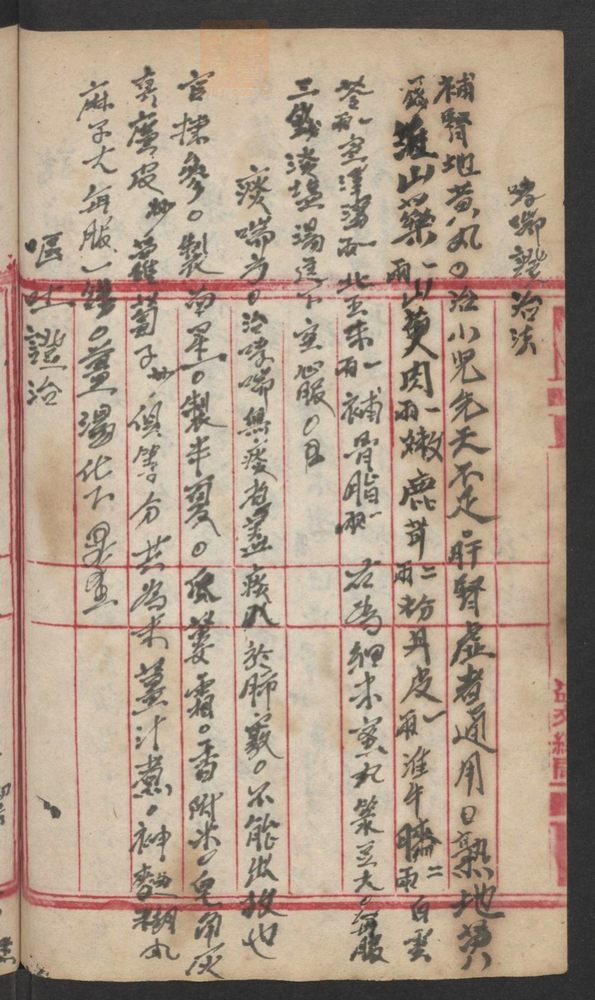 哮喘證治法
補腎地黃丸。治小兒先天不足肝腎虛者通用。熟地黃八
錢 淮山藥一兩 山萸肉一兩 嫩鹿茸二兩 粉丹皮一兩 淮牛膝二兩 白雲
苓一兩 宣澤瀉一兩 北五味一兩 補骨脂一兩 右為細末蜜丸菉豆大。每服
三錢淡塩湯送下空心服。
痰喘方。治哮喘無痰者盖痰伏於肺竅。不能出故也
官揀參。製南星。製半夏。瓜蔞霜。香附米。皂角灰
真廣皮炒 蘿蔔子炒 俱等分共為末薑汁煮。神麯糊丸
麻子大每服一錢。薑湯化下
嘔吐證治